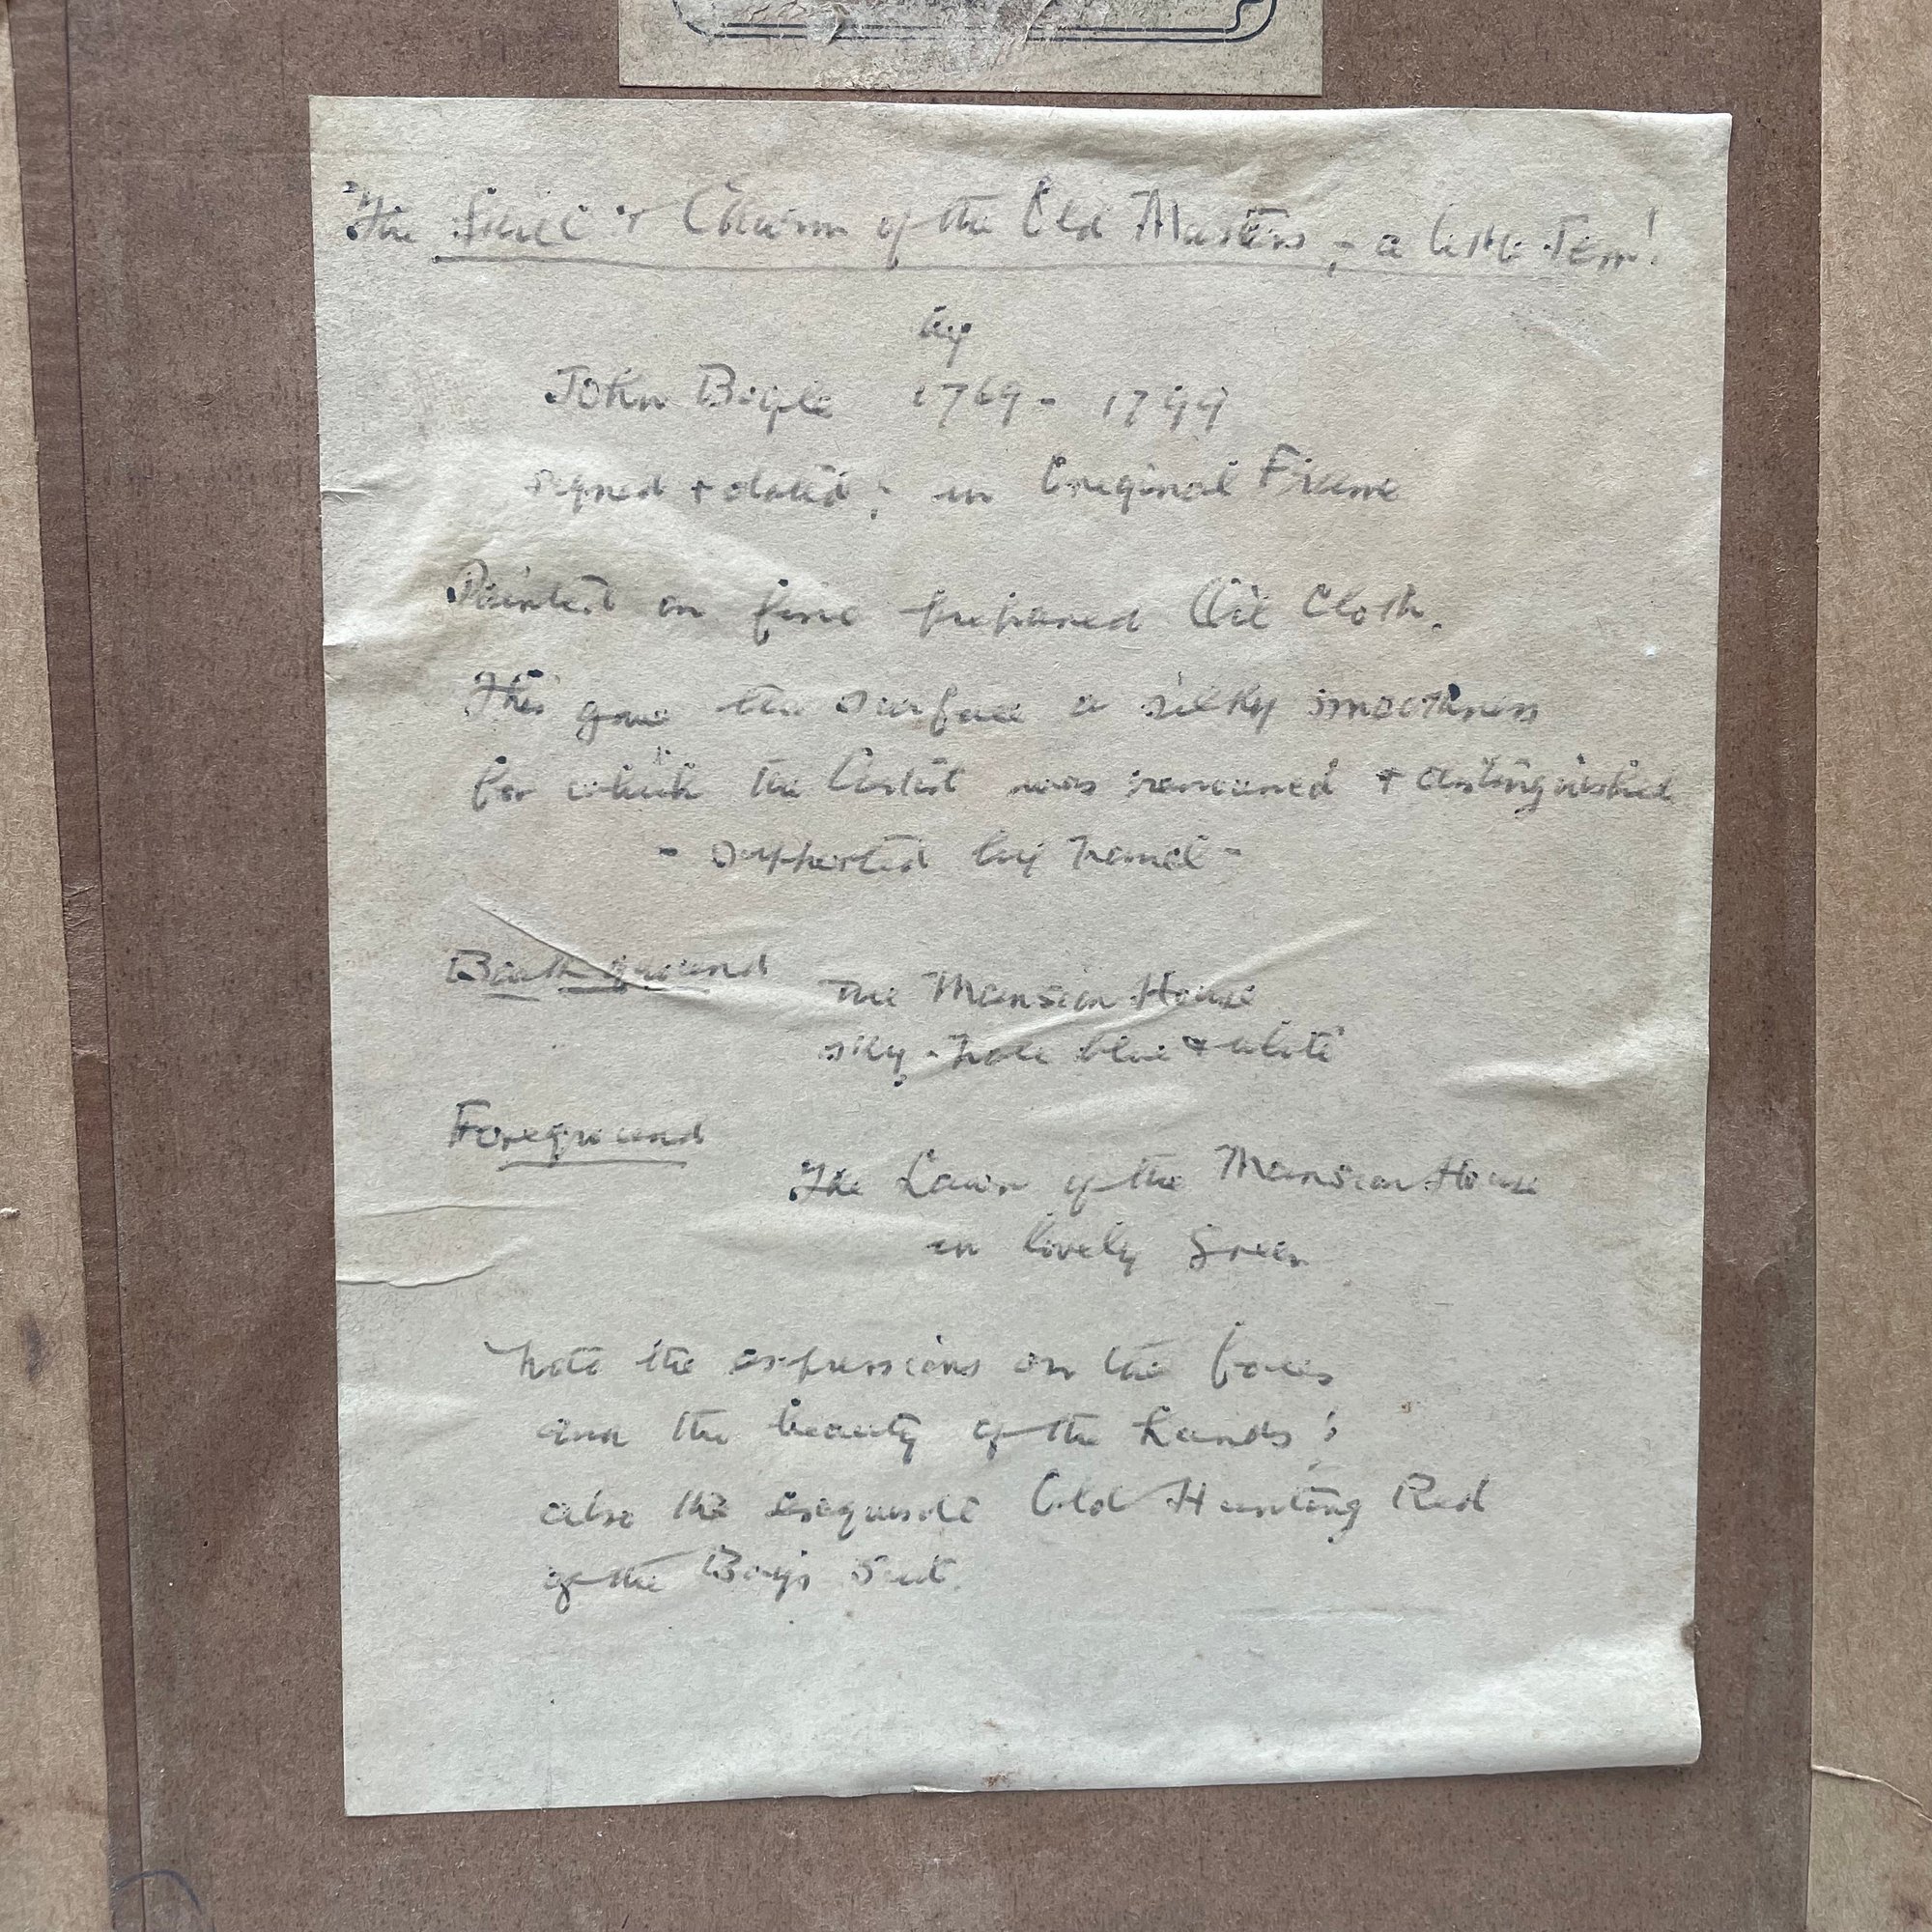 The Skill & Charm of the Old Masters, - a little Jem!
by
John Bogle 1769 - 1799
signed + dated; in Original Frame
Painted on fine prepared Oil Cloth.
This gave the surface a silky smoothness
for which the Artist was renowned + distinguished
- supported by Panel -
Back ground
The Mansion House
sky - pale blue + white
Foreground
The Lawn of the Mansion House
in lovely Green
note the expressions on the faces
and the beauty of the hands;
also the exquisite Old Hunting Red
of the Boy's Suit.